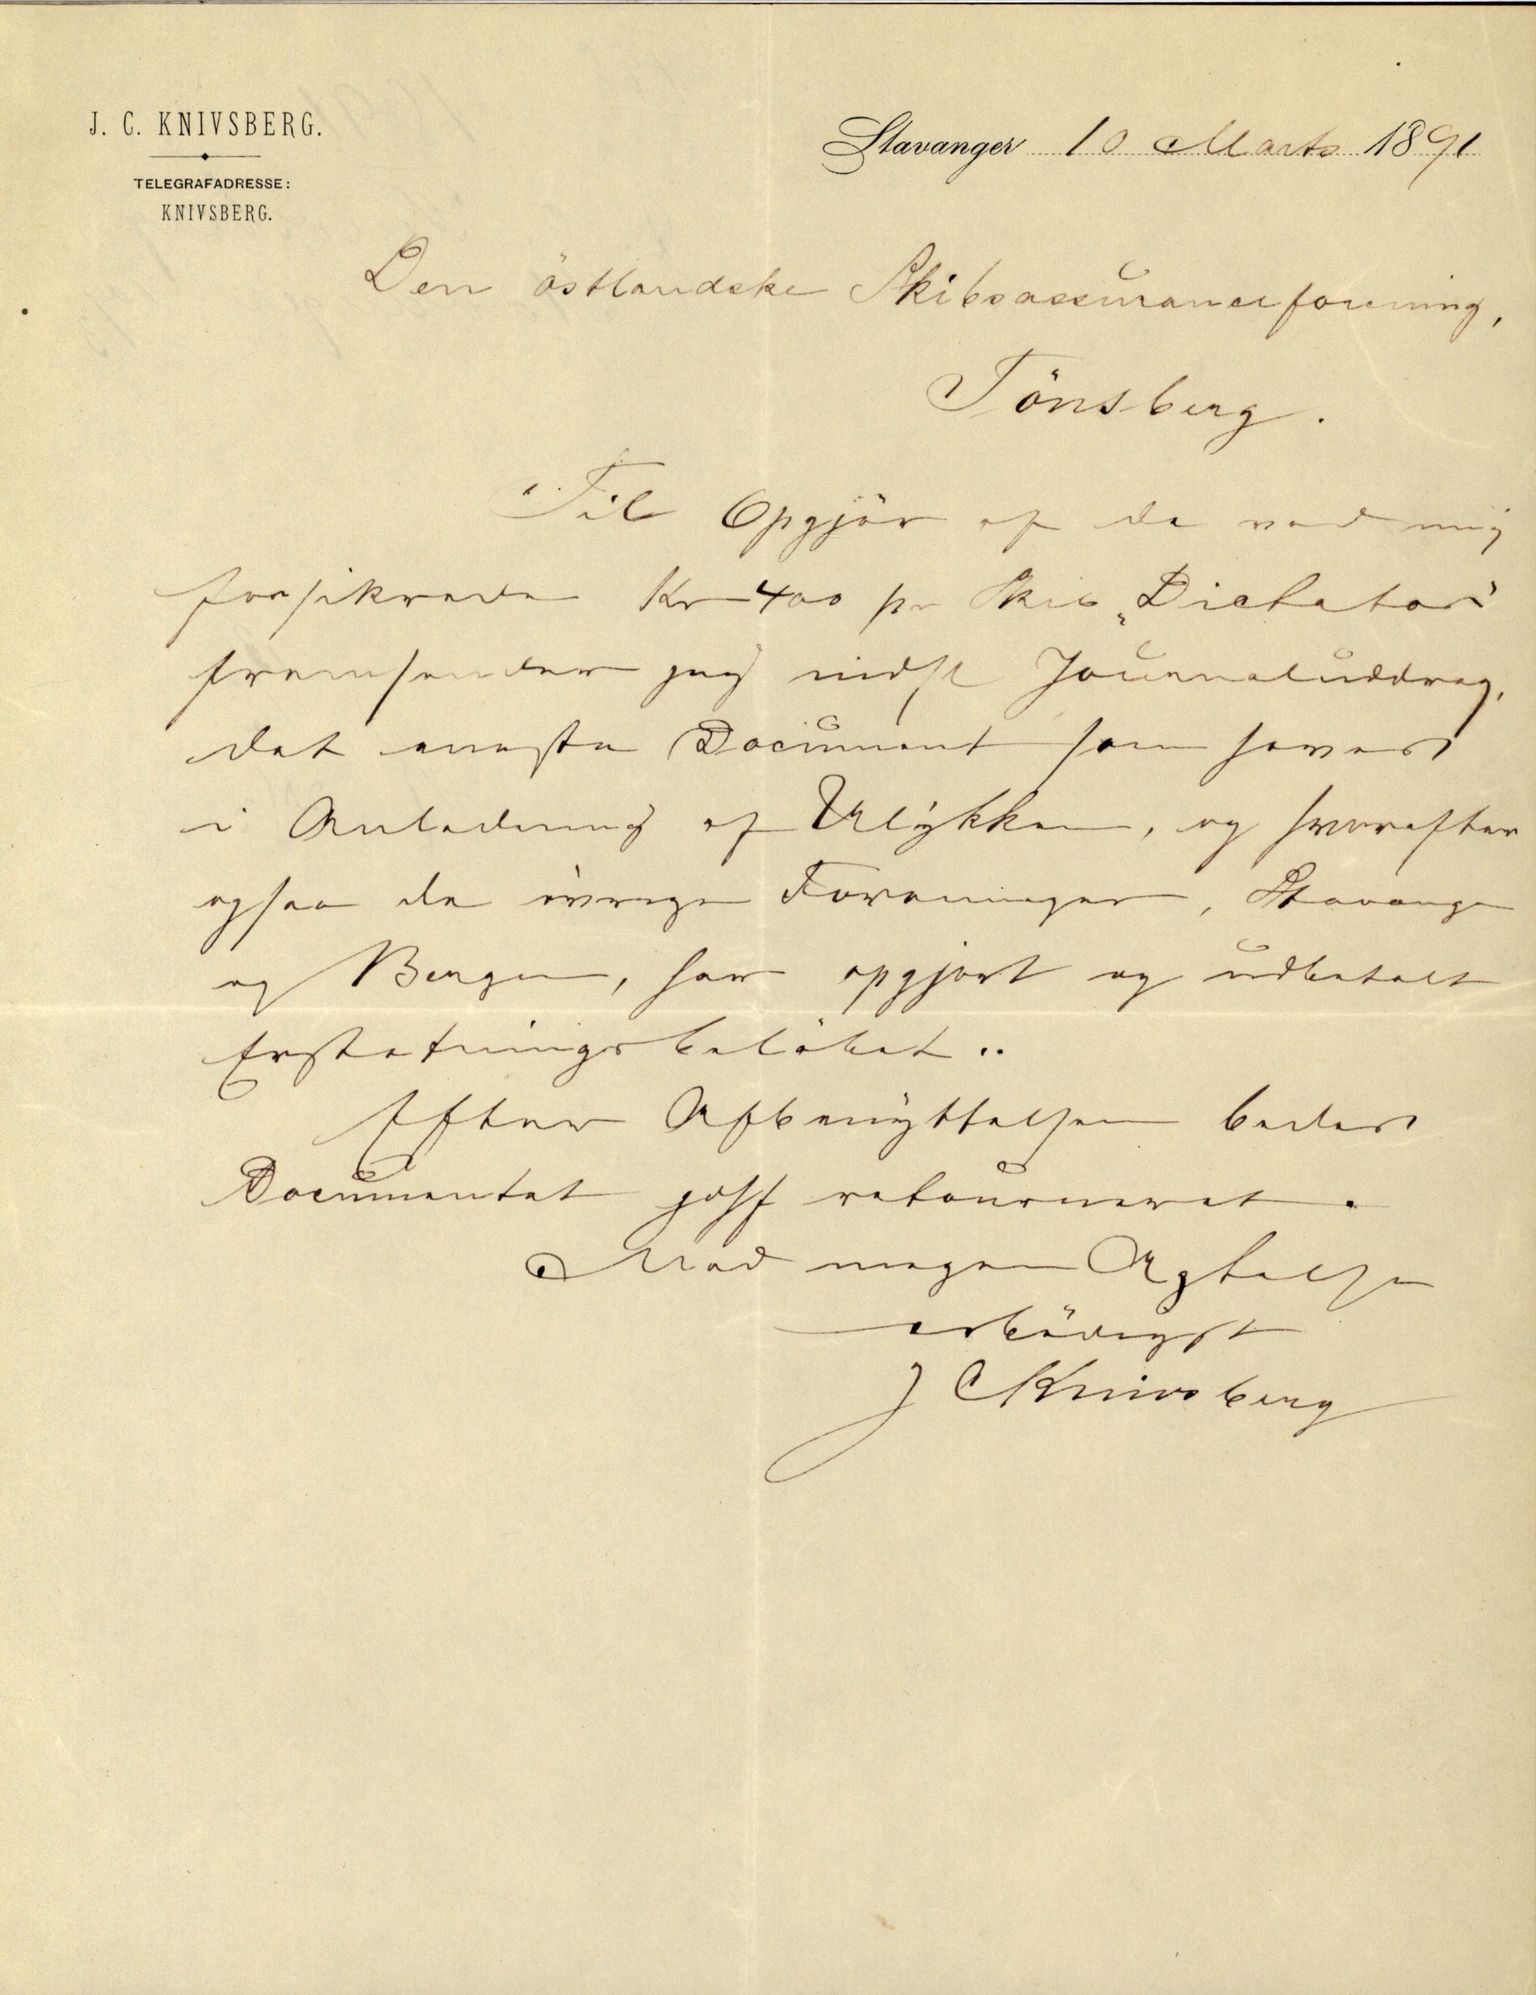 J. C. KNIVSBERG.
TELEGRAFADRESSE:
KNIVSBERG.
Stavanger 10 Marts 1891
Den östlandske Skibsassuranceforening,
Tönsberg.
Til Opgjör af de ved mig
forsikrede Kr 400 pr Skib „Dictator"
fremsender jeg indst Journaluddrag,
det eneste Document som haves
i Anledning af Ulÿkken, og hvorefter
ogsaa de övrige Foreninger, Stavanger
og Bergen, har opgjort og udbetalt
Erstatningsbelöbet..
Efter Afbenÿttelsen bedes
Documentet gohf retourneret.
Med megen Agtelse
erbödigst
J C Knivsberg